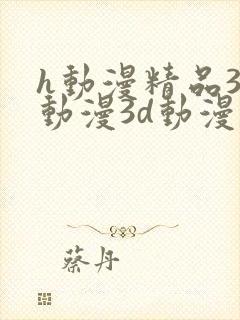 h動漫精品3
動漫3d動漫
蔡丹